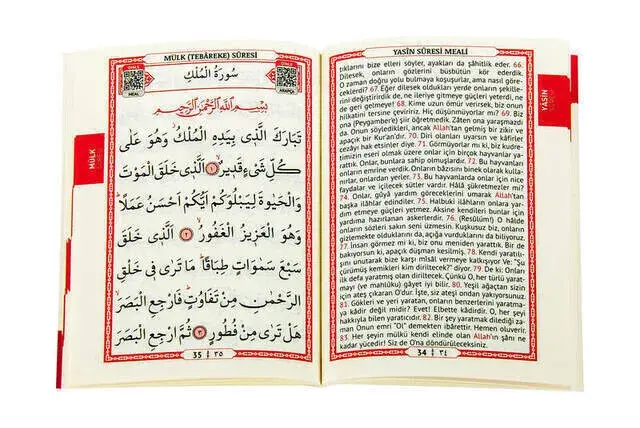 YASÎN SÛRESİ MEALİ
tıklarını bize elleri söyler, ayakları da şâhitlik eder. 66.
Dilesek, onların gözlerini büsbütün kör ederdik.
O zaman doğru yolu bulmaya koşuşurlar, ama nasıl göre-
ceklerdi? 67. Eğer dilesek oldukları yerde onların şekille-
rini değiştirirdik de, ne ileriye gitmeye güçleri yeterdi, ne
de geri gelmeye! 68. Kime uzun ömür verirsek, biz onun
hilkatini tersine çeviririz. Hiç düşünmüyorlar mı? 69. Biz
ona (Peygambere) şiir öğretmedik. Zâten ona yaraşmazdı
da. Onun söyledikleri, ancak Allah'tan gelmiş bir zikir ve
apaçık bir Kur'an'dır. 70. Diri olanları uyarsın ve kâfirler
cezâyı hak etsinler diye. 71. Görmüyorlar mı ki, biz kudre-
timizin eseri olmak üzere onlar için birçok hayvanlar ya-
rattık. Onlar, bunlara sahip olmuşlardır. 72. Bu hayvanları
onların emrine verdik. Onların bâzısını binek olarak kulla-
nırlar, onlardan yerler. 73. Bu hayvanlarda onlar için nice
faydalar ve içilecek sütler vardır. Hâlâ şükretmezler mi?
74. Onlar, gûyâ yardım göreceklerini umarak Allah'tan
başka ilâhlar edindiler. 75. Halbuki ilâhların onlara yar-
dım etmeye güçleri yetmez. Aksine kendileri bunlar için
yardıma hazırlanan askerlerdir. 76. (Resûlüm!) O hâlde
onların sözleri sakın seni üzmesin. Kuşkusuz biz, onların
gizlemekte olduklarını da, açığa vurduklarını da biliyoruz.
77. İnsan görmez mi ki, biz onu meniden yarattık. Bir de
bakıyorsun ki, apaçık düşman kesilmiş. 78. Kendi yaratılı-
şını unutarak bize karşı misâl vermeye kalkışıyor Ve: "Şu
çürümüş kemikleri kim diriltecek?" diyor. 79. De ki: Onları
ilk defa yaratmış olan diriltecek. Çünkü O, her türlü yarat-
mayı (ve mahlûku) gâyet iyi bilir. 80. Yeşil ağaçtan sizin
için ateş çıkaran O'dur. İşte, siz ateşi ondan yakıyorsunuz.
81. Gökleri ve yeri yaratan, onların benzerlerini yaratma-
ya kâdir değil midir? Evet! Elbette kâdirdir. O, her şeyi
hakkıyla bilen yaratıcıdır. 82. Bir şey yaratmak dilediği za-
man Onun emri "Ol" demekten ibârettir. Hemen oluverir.
83. Her şeyin mülkü kendi elinde olan Allah'ın şânı ne
kadar yücedir! Siz de O'na döndürüleceksiniz.
34 | ٣٤
YASİN
MÜLK (TEBÂREKE) SÛRESİ
MEAL
سُورَةُ الْمُلْكِ
ARAPÇA
بِسْمِ اللّٰهِ الرَّحْمٰنِ الرَّحِيمِ
تَبَارَكَ الَّذٖى بِيَدِهِ الْمُلْكُ وَهُوَ عَلٰى
كُلِّ شَىْءٍ قَدٖيرٌ ١ اَلَّذٖى خَلَقَ الْمَوْتَ
وَالْحَيٰوةَ لِيَبْلُوَكُمْ اَيُّكُمْ اَحْسَنُ عَمَلًا
وَهُوَ الْعَزٖيزُ الْغَفُورُ ٢ اَلَّذٖى خَلَقَ
سَبْعَ سَمٰوَاتٍ طِبَاقًا مَا تَرٰى فٖى خَلْقِ
الرَّحْمٰنِ مِنْ تَفَاوُتٍ فَارْجِعِ الْبَصَرَ
هَلْ تَرٰى مِنْ فُطُورٍ ٣ ثُمَّ ارْجِعِ الْبَصَرَ
35 | ٣٥
MÜLK